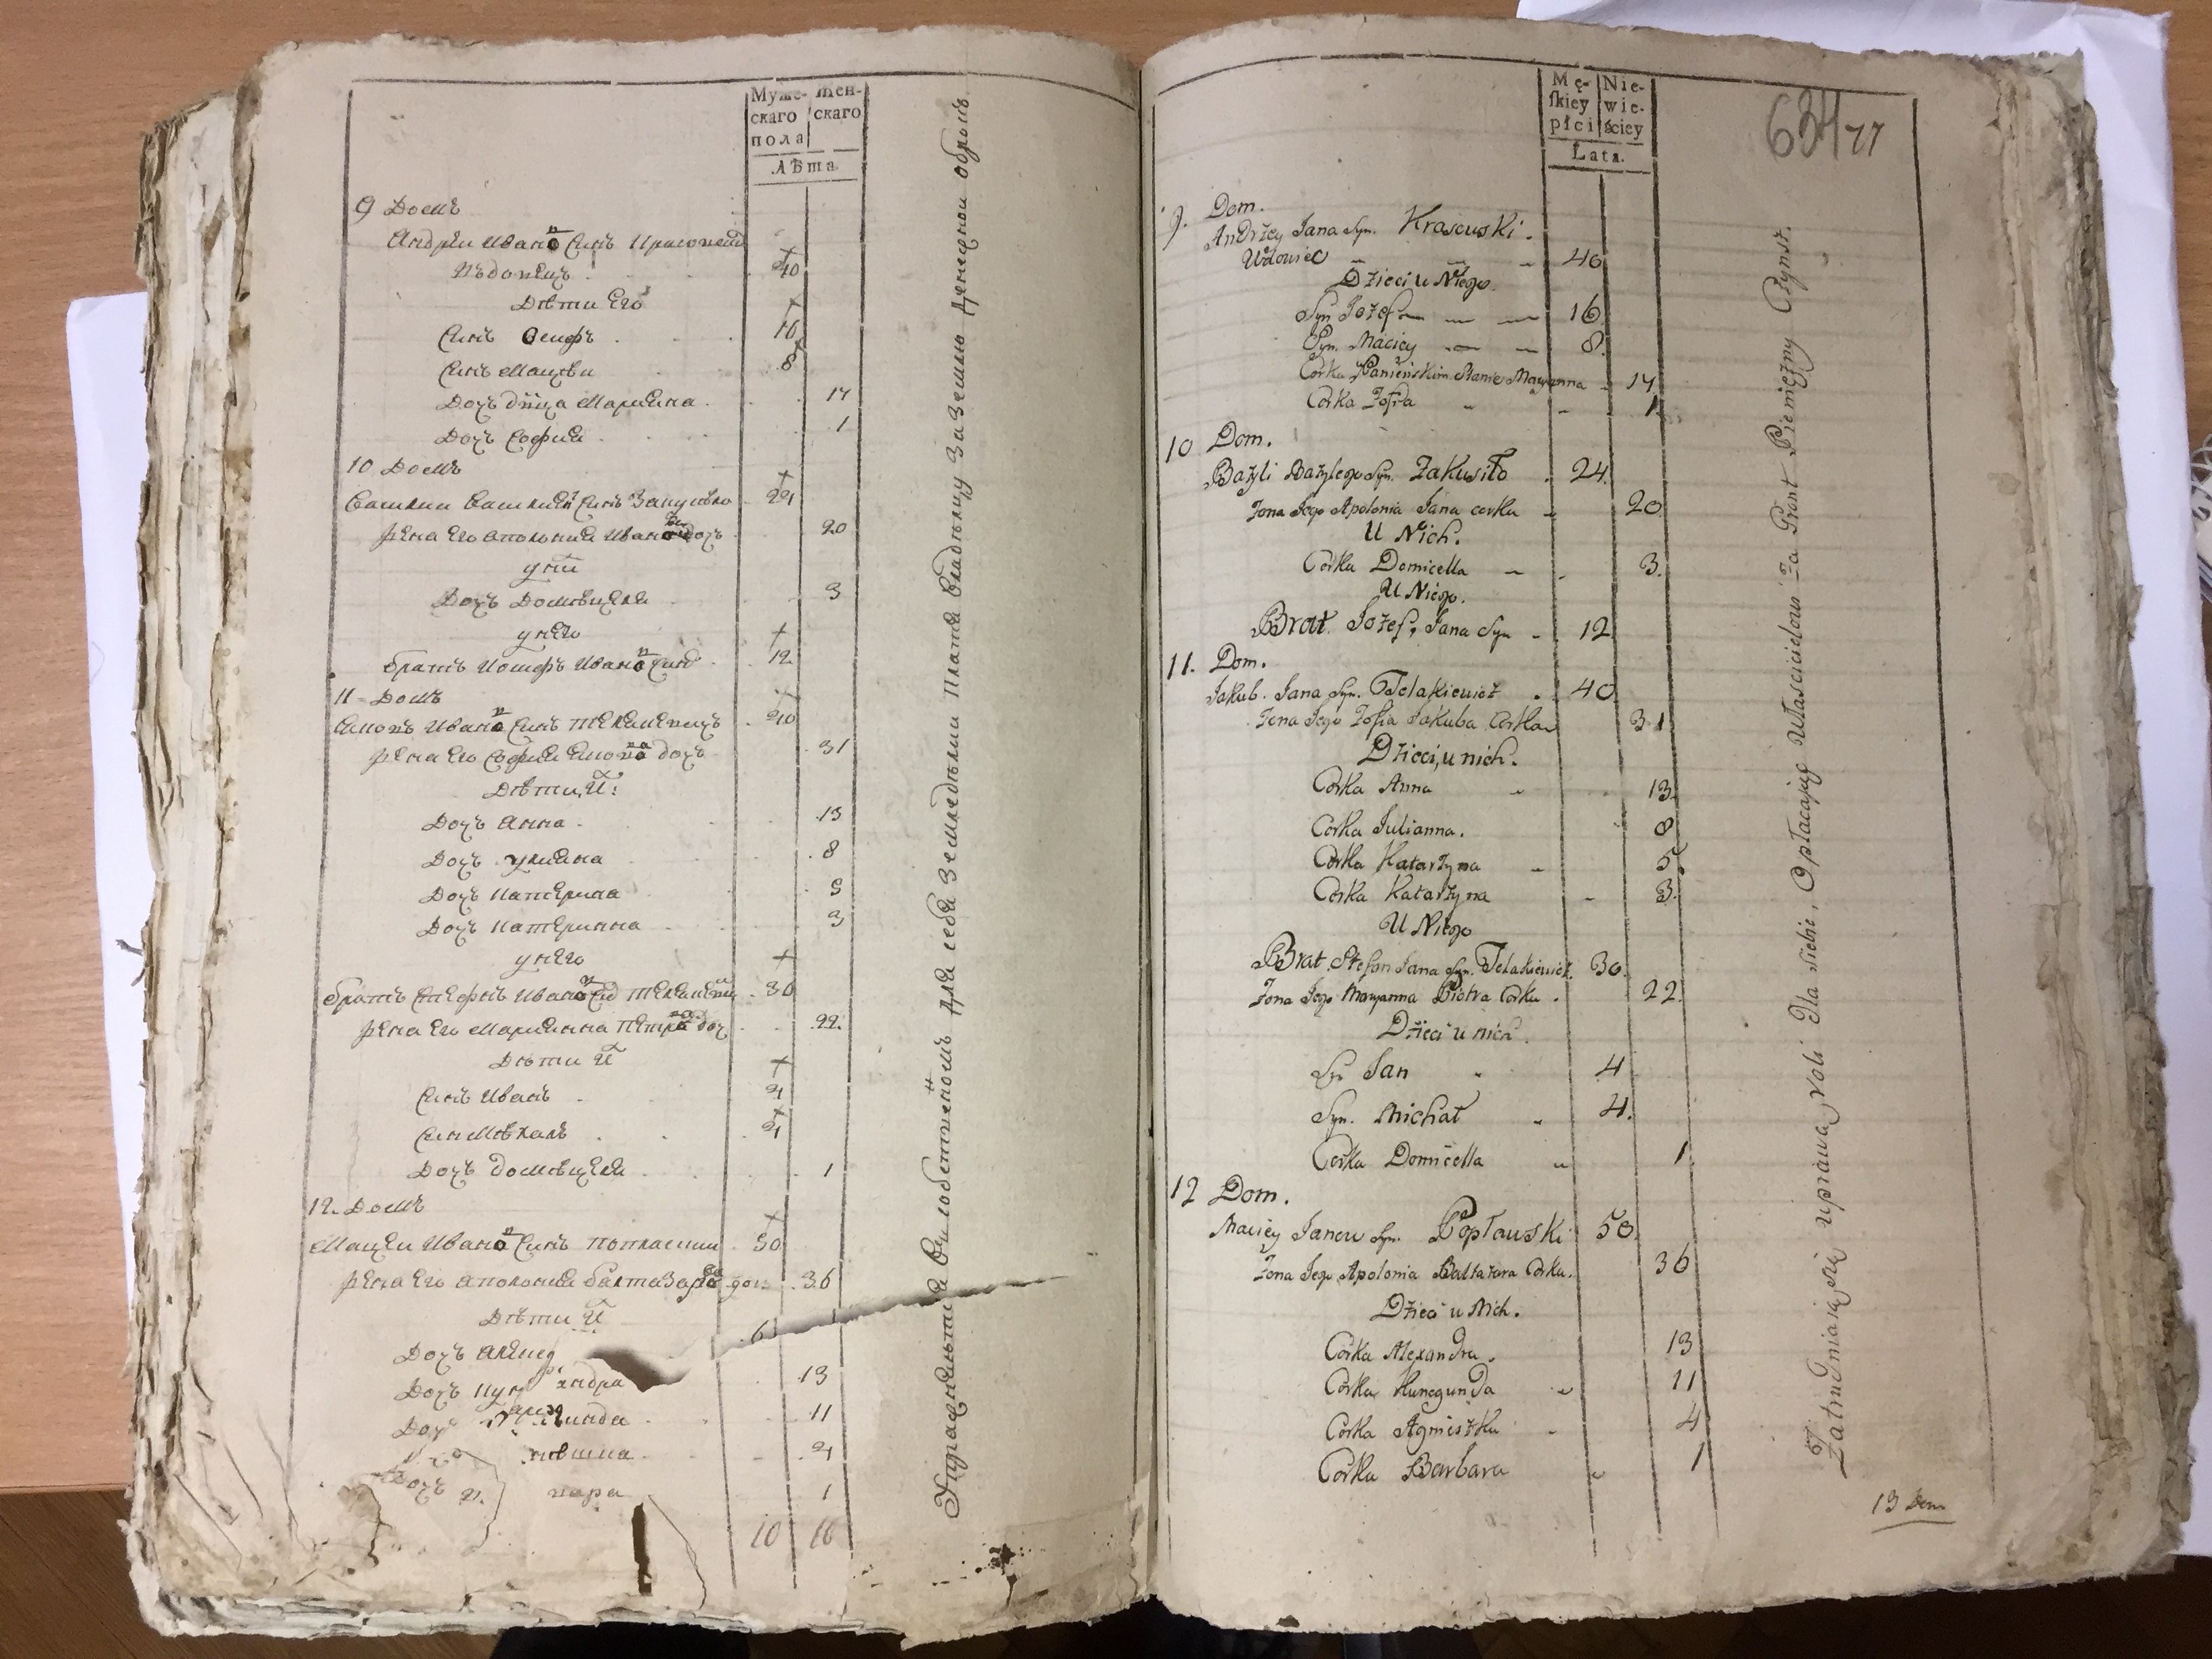 Муже- Жен-
скаго скаго
пола
Лѣта.
9 Домъ
Андрей Иванов Синъ
Вдовецъ 40
Дѣти Его
Синъ Осифъ 16
Синъ Мацѣй 8
Дочъ дѣвица Марианна 14
Дочъ София 1
10 Домъ
Василий Василиев Синъ Закусило 24
Жена Его Аполония Иванова дочъ 20
у них
Дочъ Домицеля 3
у него
братъ Иосифъ Иванов Синъ 12
11 Домъ
Иванов Синъ 40
жена Его София дочъ 31
Дѣти Их:
Дочъ Анна 13
Дочъ Улияна 8
Дочъ Катерина 5
Дочъ Катерина 3
у него
братъ Стефанъ Иванов 30
жена Его Марианна Петрова доч 22.
Дѣти Их
Синъ Иванъ 4
Синъ Михалъ 4
Дочъ Домицеля 1
12. Домъ
Мацей Иванов Синъ Поплавский 50
жена Его Аполония Балтазарова доч 36
Дѣти Их
Дочъ 13
Дочъ 11
Дочъ 4
Дочъ 1
10 16
Упражняются для себя Земли За Землю Денежной оброкъ
Mę- Nie-
ſkiey wie-
płci ściey
Lata.
634 77
9. Dom.
Andrzey Jana Syn. Krasowski.
Wdowiec 40
Dzieci u Niego.
Syn Jozef 16
Syn. Maciey 8.
Corka w Panieńskim Stanie Maryanna 14
Corka Zofia 1
10 Dom.
Bazyli Bazylego Syn. Zakusiło 24.
Zona Jego Apolonia Jana corka 20
U Nich.
Corka Domicella 3.
U Niego.
Brat Jozef, Jana Syn 12
11. Dom.
Jakub. Jana Syn. Telakiewicz 40
Zona Jego Zofia Jakuba Corka 31
Dzieci u nich.
Corka Anna 13.
Corka Julianna. 8
Corka Katarzyna 5
Corka Katarzyna 3.
U Niego
Brat Stefan Jana Syn. Telakiewicz. 30.
Zona Jego Maryanna Piotra Corka. 22.
Dzieci u nich.
Syn Jan 4
Syn. Michał 4.
Corka Domicella 1
12 Dom.
Maciey Janow Syn. Popławski 50.
Zona Jego Apolonia Baltazara Corka. 36
Dzieci u Nich.
Corka Alexandra. 13
Corka Kunegunda 11
Corka Agnieszka 4
Corka Barbara 1
Zatrudniaią się uprawą roli dla siebie, Opłacaiąc Właścicielowi Za Grunt Pieniężny Czynsz.
13 Dom